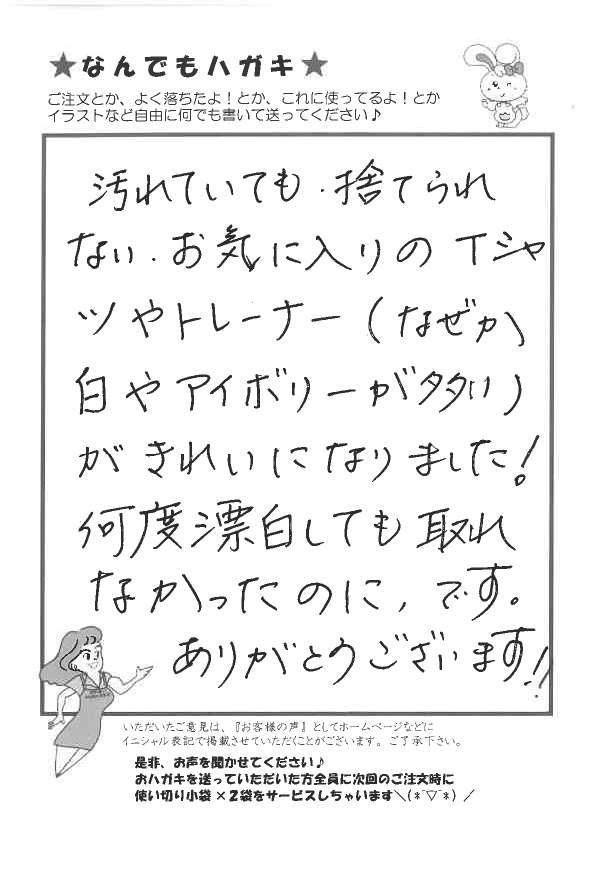 ★なんでもハガキ★
ご注文とか、よく落ちたよ！とか、これに使ってるよ！とか
イラストなど自由に何でも書いて送ってください♪
汚れていても、捨てられ
ない、お気に入りのTシャ
ツやトレーナー（なぜか
白やアイボリーが多い）
がきれいになりました！
何度漂白しても取れ
なかったのに、です。
ありがとうございます!!
いただいたご意見は、『お客様の声』としてホームページなどに
イニシャル表記で掲載させていただくことがございます。ご了承下さい。
是非、お声を聞かせてください♪
おハガキを送っていただいた方全員に次回のご注文時に
使い切り小袋×2袋をサービスしちゃいます＼(*ˉ▽ˉ*)／